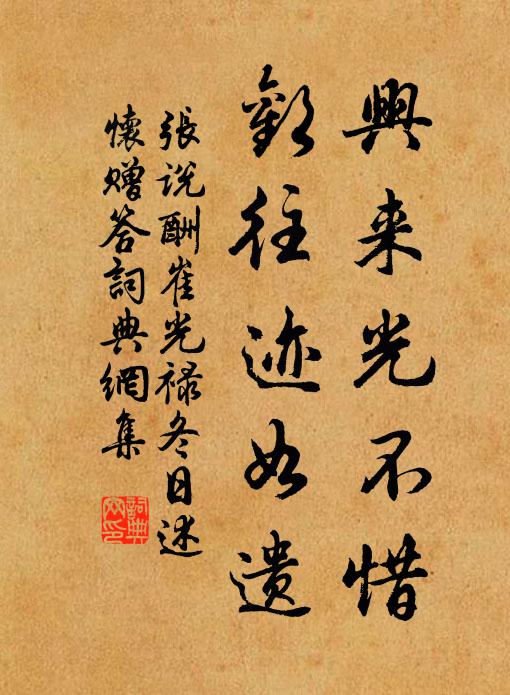 興来光不惜
歡往迹如遺
張説酬崔光禄冬日述
懷贈答詞典網集
詞典網印